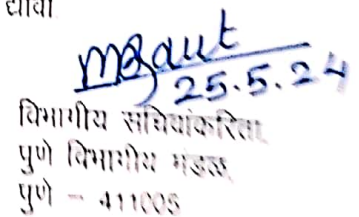 द्यावा
25.5.24
विभागीय सचिवांकरिता
पुणे विभागीय मंडळ
पुणे - 411005